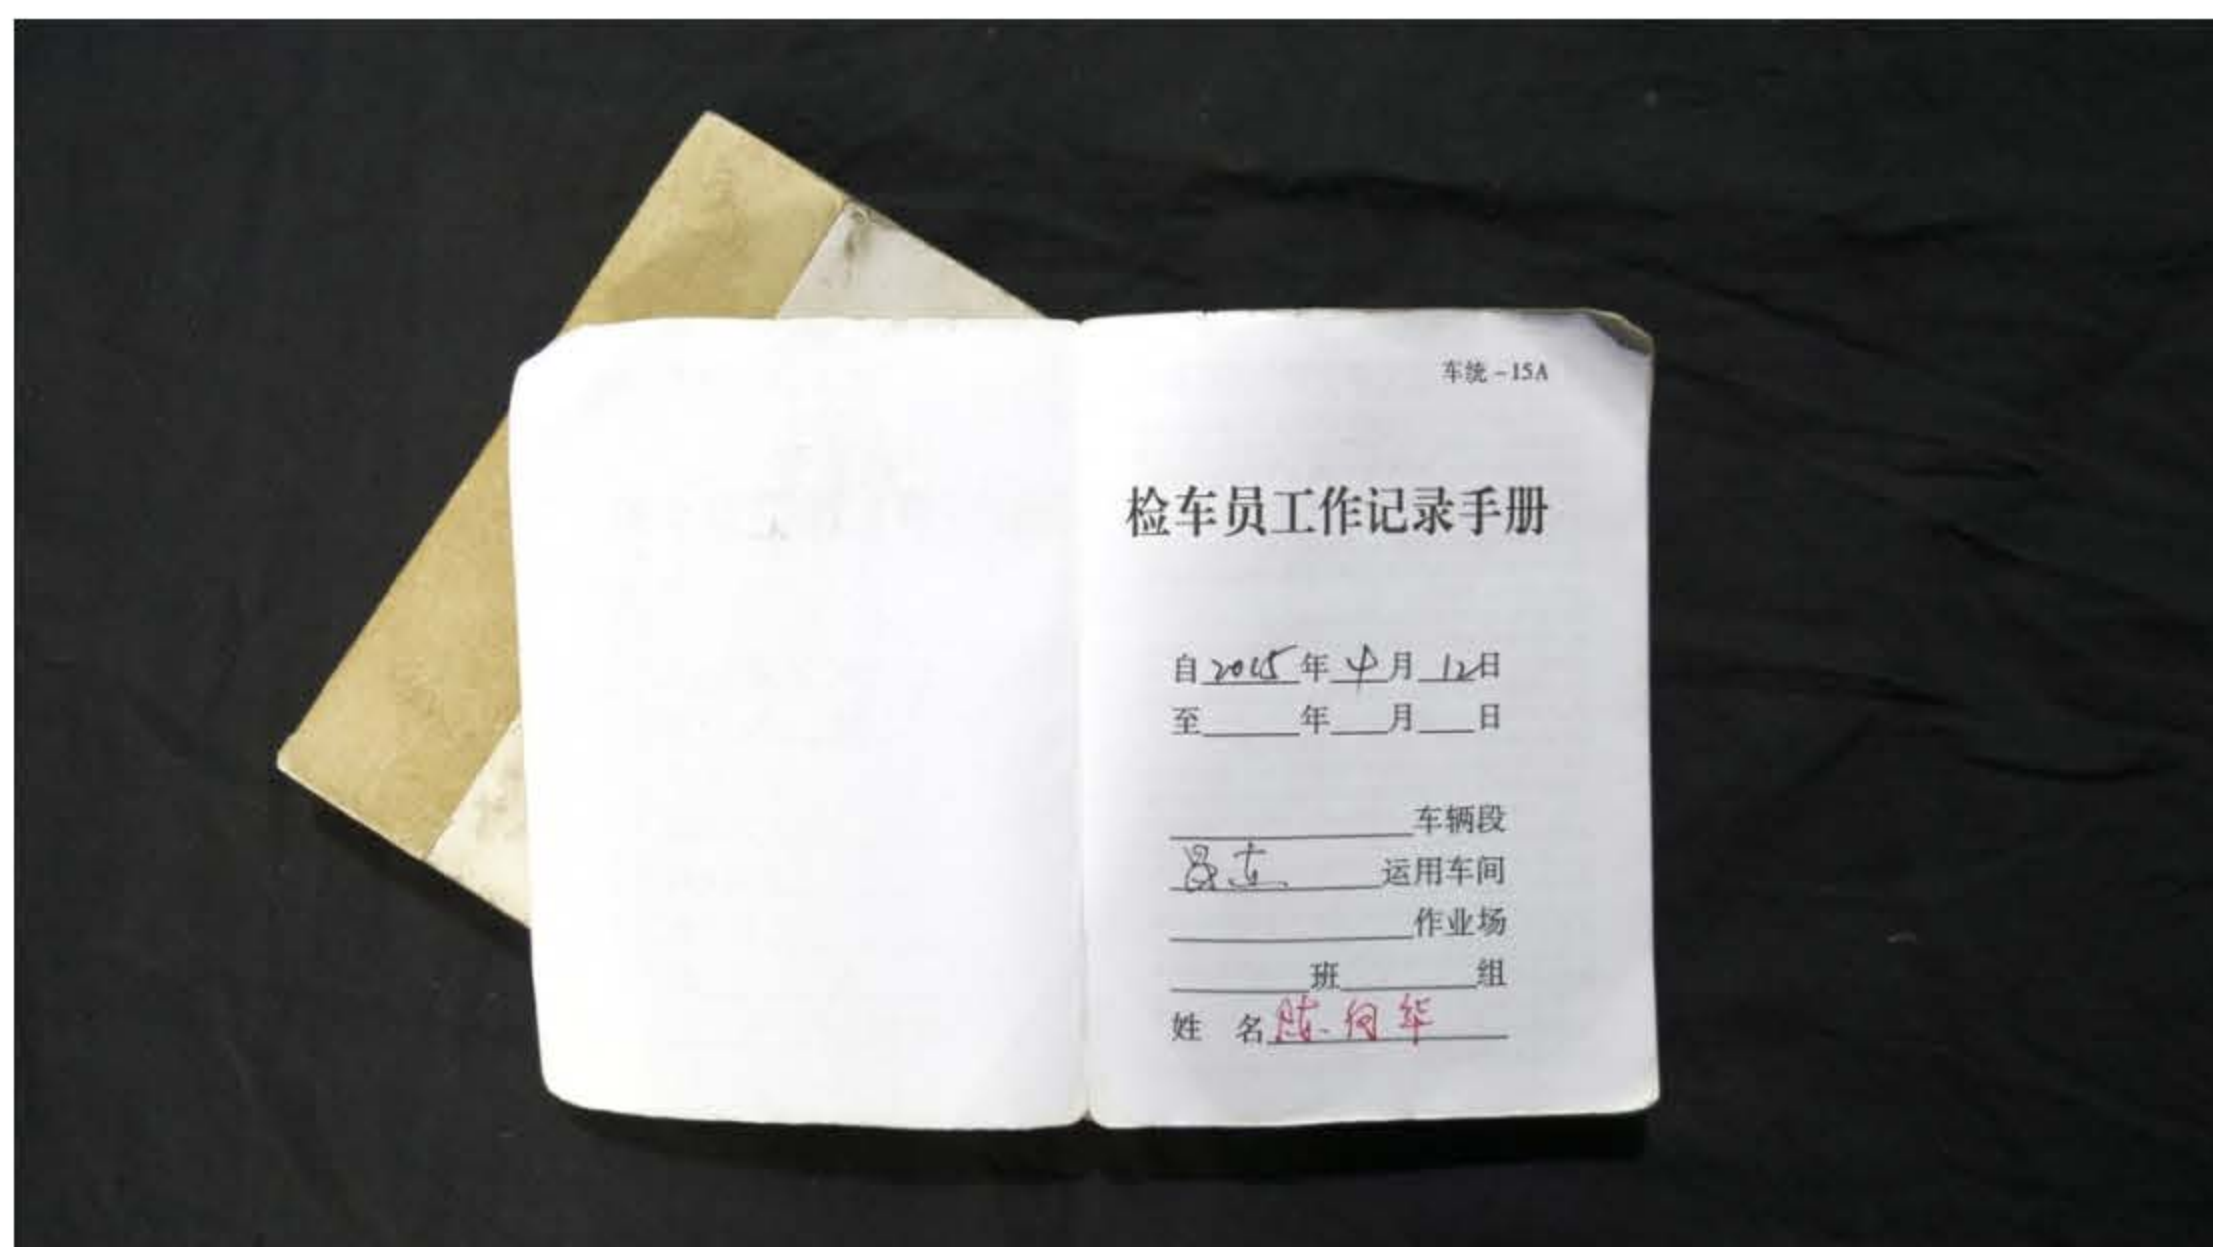 车统-15A
检车员工作记录手册
自2015年4月12日
至____年___月___日
________车辆段
________运用车间
________作业场
_____班_____组
姓 名陈向华